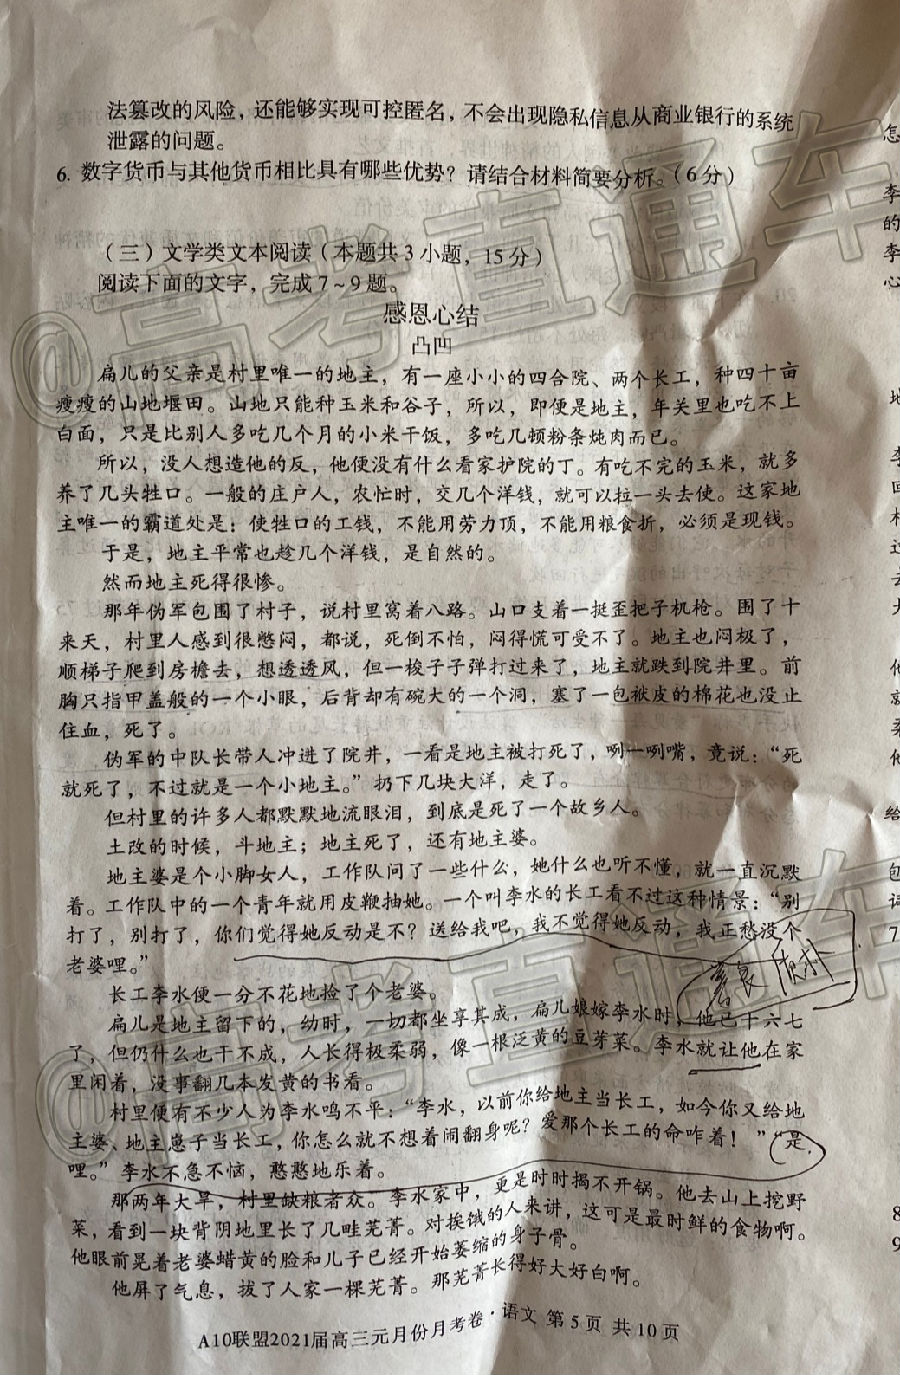 法篡改的风险，还能够实现可控匿名，不会出现隐私信息从商业银行的系统
泄露的问题。
6. 数字货币与其他货币相比具有哪些优势？请结合材料简要分析。（6分）
（三）文学类文本阅读（本题共3小题，15分）
阅读下面的文字，完成7~9题。
感恩心结
凸凹
扁儿的父亲是村里唯一的地主，有一座小小的四合院、两个长工，种四十亩
瘦瘦的山地堰田。山地只能种玉米和谷子，所以，即便是地主，年关里也吃不上
白面，只是比别人多吃几个月的小米干饭，多吃几顿粉条炖肉而已。
所以，没人想造他的反，他便没有什么看家护院的丁。有吃不完的玉米，就多
养了几头牲口。一般的庄户人，农忙时，交几个洋钱，就可以拉一头去使。这家地
主唯一的霸道处是：使牲口的工钱，不能用劳力顶，不能用粮食折，必须是现钱。
于是，地主平常也趁几个洋钱，是自然的。
然而地主死得很惨。
那年伪军包围了村子，说村里窝着八路。山口支着一挺歪把子机枪。围了十
来天，村里人感到很憋闷，都说，死倒不怕，闷得慌可受不了。地主也闷极了，
顺梯子爬到房檐去，想透透风，但一梭子子弹打过来了，地主就跌到院井里。前
胸只指甲盖般的一个小眼，后背却有碗大的一个洞，塞了一包被皮的棉花也没止
住血，死了。
伪军的中队长带人冲进了院井，一看是地主被打死了，咧一咧嘴，竟说：“死
就死了，不过就是一个小地主。”扔下几块大洋，走了。
但村里的许多人都默默地流眼泪，到底是死了一个故乡人。
土改的时候，斗地主；地主死了，还有地主婆。
地主婆是个小脚女人，工作队问了一些什么，她什么也听不懂，就一直沉默
着。工作队中的一个青年就用皮鞭抽她。一个叫李水的长工看不过这种情景：“别
打了，别打了，你们觉得她反动是不？送给我吧，我不觉得她反动，我正愁没个
老婆哩。”
长工李水便一分不花地捡了个老婆。
扁儿是地主留下的，幼时，一切都坐享其成，扁儿娘嫁李水时，他已十六七
了，但仍什么也干不成，人长得极柔弱，像一根泛黄的豆芽菜。李水就让他在家
里闲着，没事翻几本发黄的书看。
村里便有不少人为李水鸣不平：“李水，以前你给地主当长工，如今你又给地
主婆、地主崽子当长工，你怎么就不想着闹翻身呢？爱那个长工的命咋着！”“是
哩。”李水不急不恼，憨憨地乐着。
那两年大旱，村里缺粮者众。李水家中，更是时时揭不开锅。他去山上挖野
菜，看到一块背阴地里长了几畦芜菁。对挨饿的人来讲，这可是最时鲜的食物啊。
他眼前晃着老婆蜡黄的脸和儿子已经开始萎缩的身子骨。
他屏了气息，拔了人家一棵芜菁。那芜菁长得好大好白啊。
A10联盟2021届高三元月份月考卷·语文 第5页 共10页
@高考直通车
@高考直通车